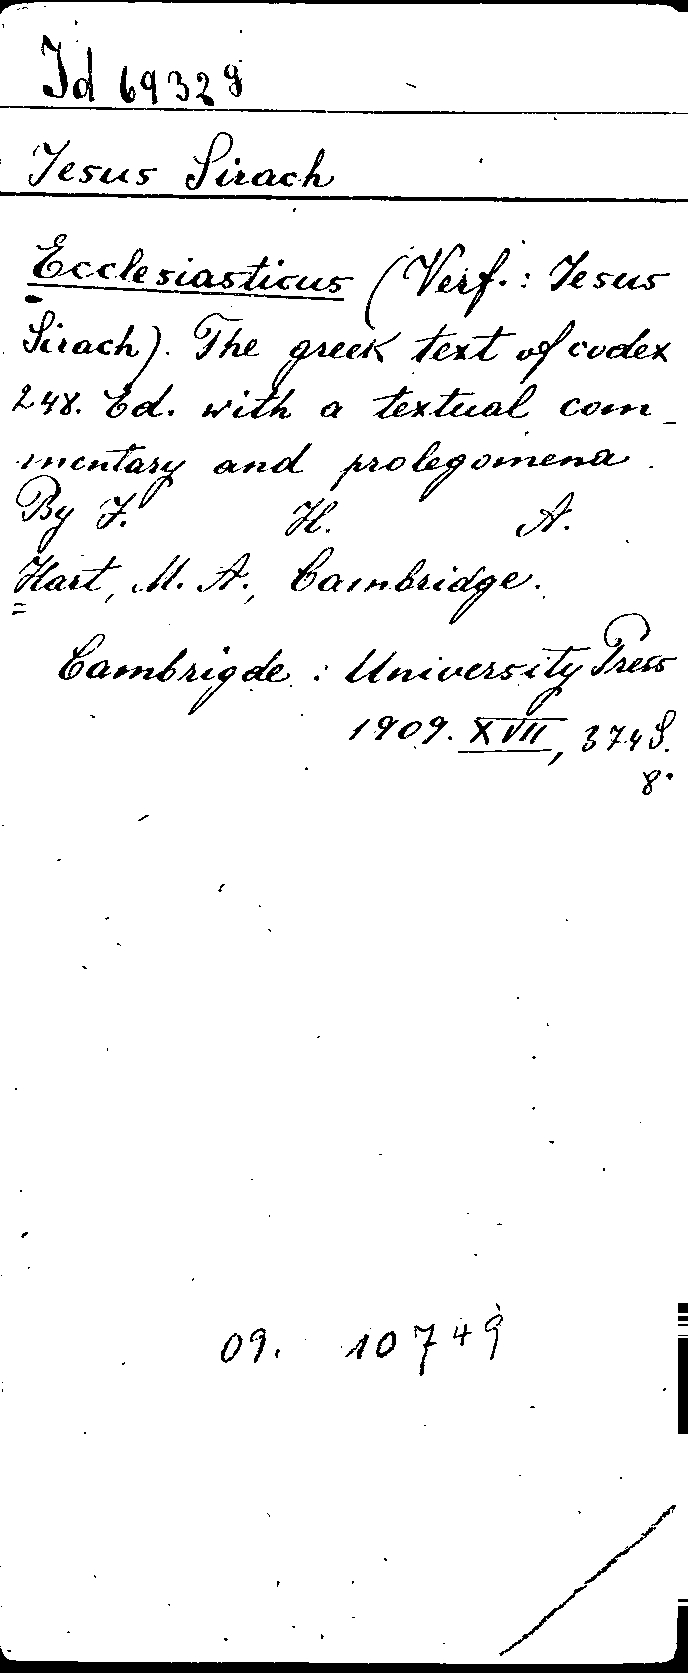 Id 69329
Jesus Sirach
Ecclesiasticus (Verf.: Jesus
Sirach). The greek text of codex
248. Ed. with a textual com-
mentary and prolegomena.
By J. H. A.
Hart, M. A., Cambridge.
Cambrigde: University Press
1909. XVII, 374 S.
8°
09. 10749